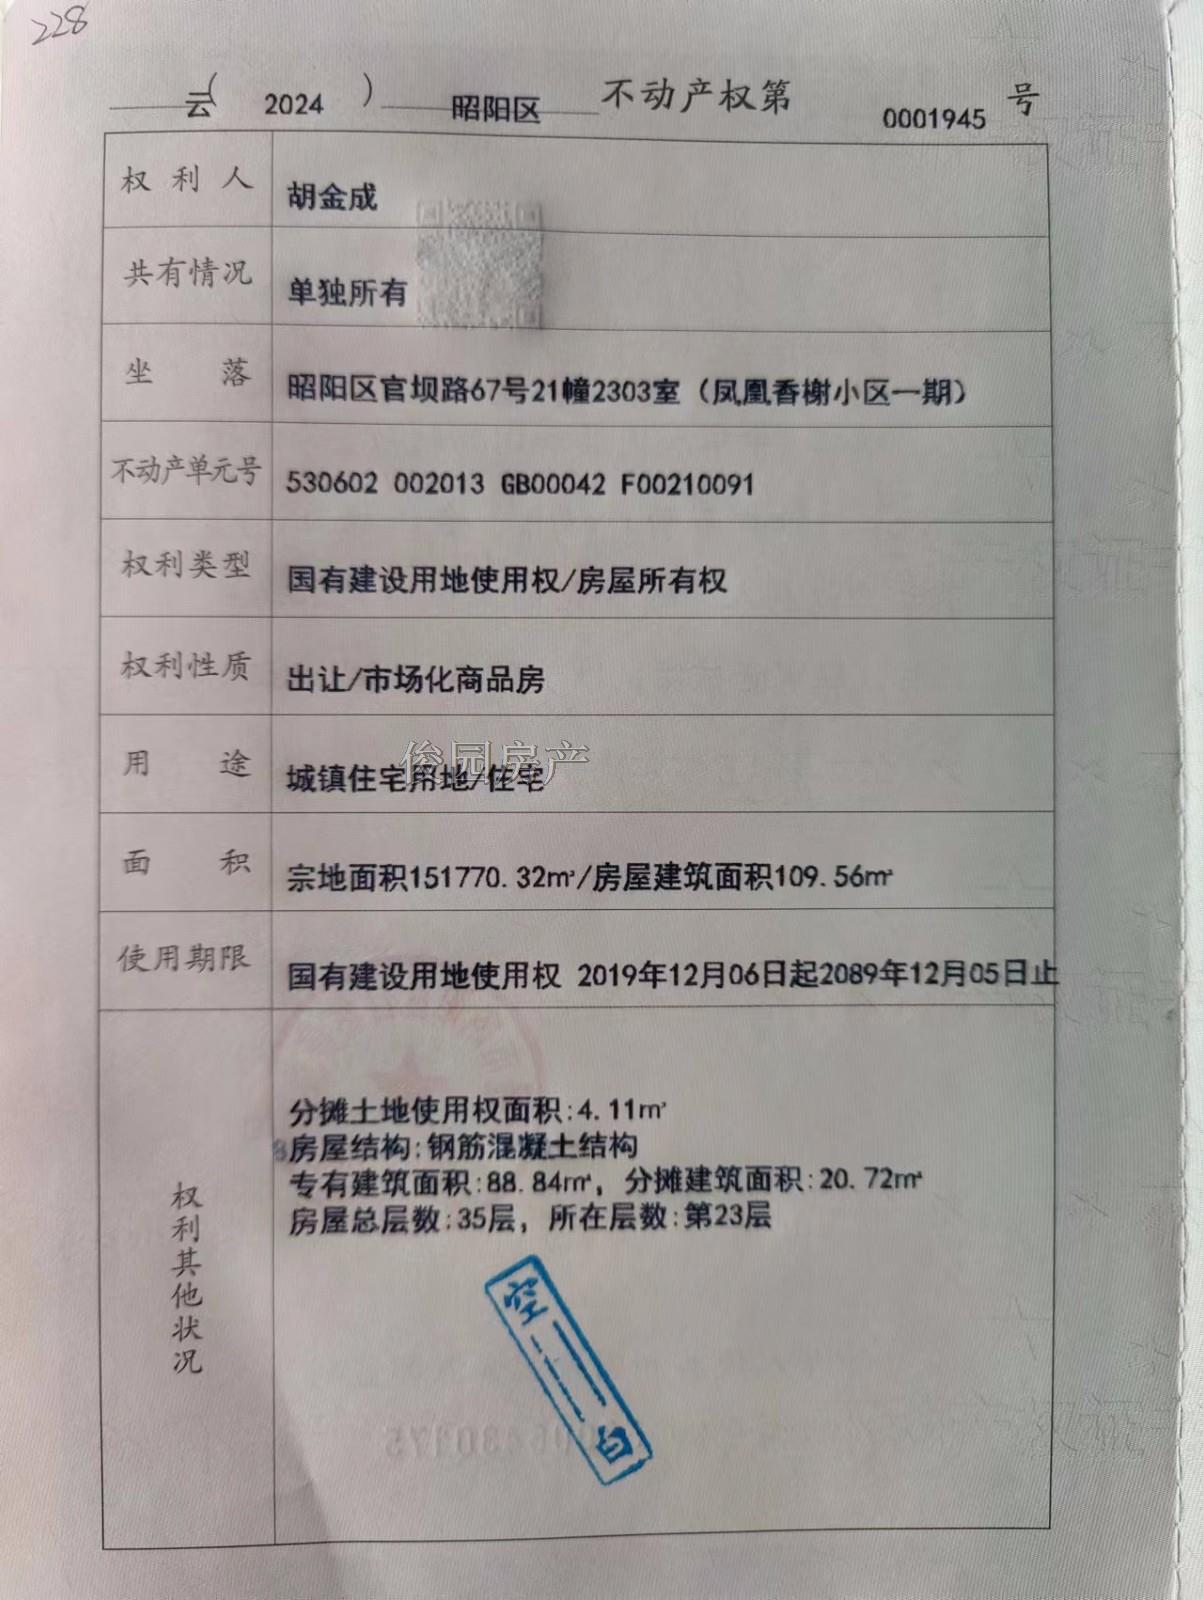 228
云( 2024 ) 昭阳区 不动产权第 0001945 号
权利人 胡金成
共有情况 单独所有
坐落 昭阳区官坝路67号21幢2303室（凤凰香榭小区一期）
不动产单元号 530602 002013 GB00042 F00210091
权利类型 国有建设用地使用权/房屋所有权
权利性质 出让/市场化商品房
用途 城镇住宅用地/住宅
俊园房产
面积 宗地面积151770.32㎡/房屋建筑面积109.56㎡
使用期限 国有建设用地使用权 2019年12月06日起2089年12月05日止
权利其他状况
分摊土地使用权面积:4.11㎡
房屋结构:钢筋混凝土结构
专有建筑面积:88.84㎡，分摊建筑面积:20.72㎡
房屋总层数:35层，所在层数:第23层
空白